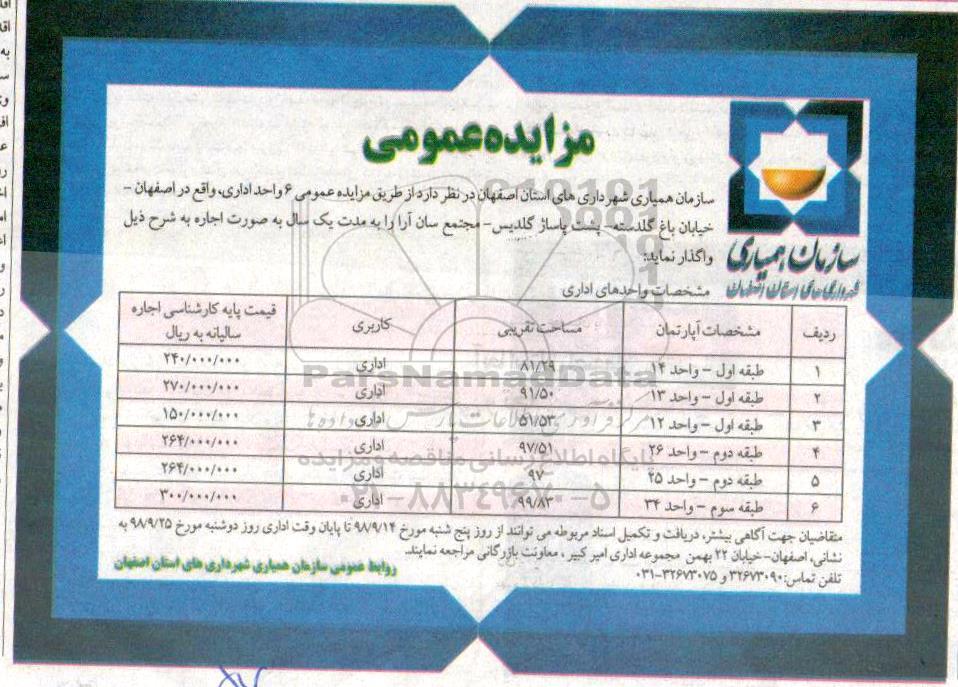 مزایده عمومی
سازمان همیاری
شهرداری های استان اصفهان
سازمان همیاری شهرداری های استان اصفهان در نظر دارد از طریق مزایده عمومی ۶ واحد اداری، واقع در اصفهان -
خیابان باغ گلدسته- پشت پاساژ گلدیس- مجتمع سان آرا را به مدت یک سال به صورت اجاره به شرح ذیل
واگذار نماید:
مشخصات واحدهای اداری
ردیف مشخصات آپارتمان مساحت تقریبی کاربری قیمت پایه کارشناسی اجاره سالیانه به ریال
۱ طبقه اول - واحد ۱۴ ۸۱/۲۹ اداری ۲۴۰/۰۰۰/۰۰۰
۲ طبقه اول - واحد ۱۳ ۹۱/۵۰ اداری ۲۷۰/۰۰۰/۰۰۰
۳ طبقه اول - واحد ۱۲ ۵۱/۵۳ اداری ۱۵۰/۰۰۰/۰۰۰
۴ طبقه دوم - واحد ۲۶ ۹۷/۵۱ اداری ۲۶۴/۰۰۰/۰۰۰
۵ طبقه دوم - واحد ۲۵ ۹۷ اداری ۲۶۴/۰۰۰/۰۰۰
۶ طبقه سوم - واحد ۳۴ ۹۹/۸۳ اداری ۳۰۰/۰۰۰/۰۰۰
ParsNamadData
پایگاه اطلاع رسانی مناقصه و مزایده
۰۲۱-۸۸۳۴۹۶۷۰-۵
متقاضیان جهت آگاهی بیشتر، دریافت و تکمیل اسناد مربوطه می توانند از روز پنج شنبه مورخ ۹۸/۹/۱۴ تا پایان وقت اداری روز دوشنبه مورخ ۹۸/۹/۲۵ به
نشانی، اصفهان- خیابان ۲۲ بهمن مجموعه اداری امیر کبیر ، معاونت بازرگانی مراجعه نمایند.
تلفن تماس: ۳۲۶۷۳۰۹۰ و ۳۲۶۷۳۰۷۵-۰۳۱
روابط عمومی سازمان همیاری شهرداری های استان اصفهان